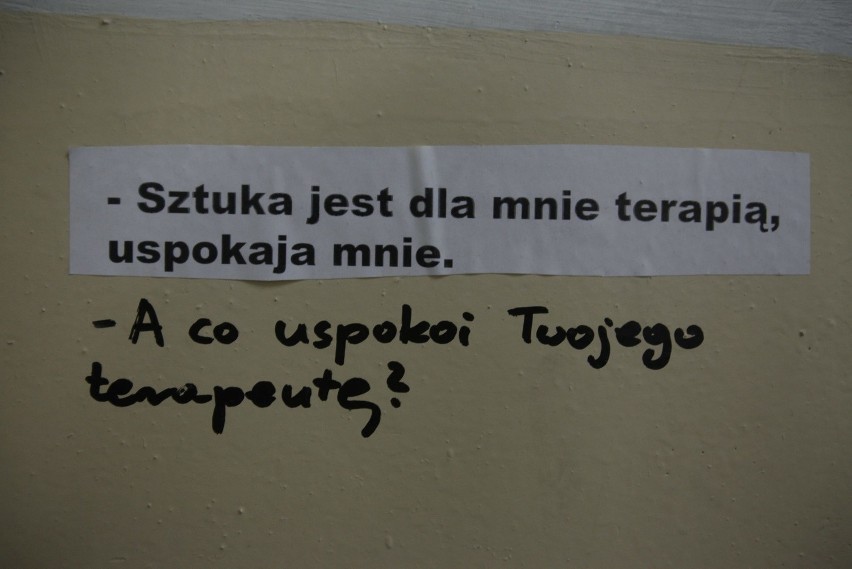 - Sztuka jest dla mnie terapią,
uspokaja mnie.
- A co uspokoi Twojego
terapeutę?